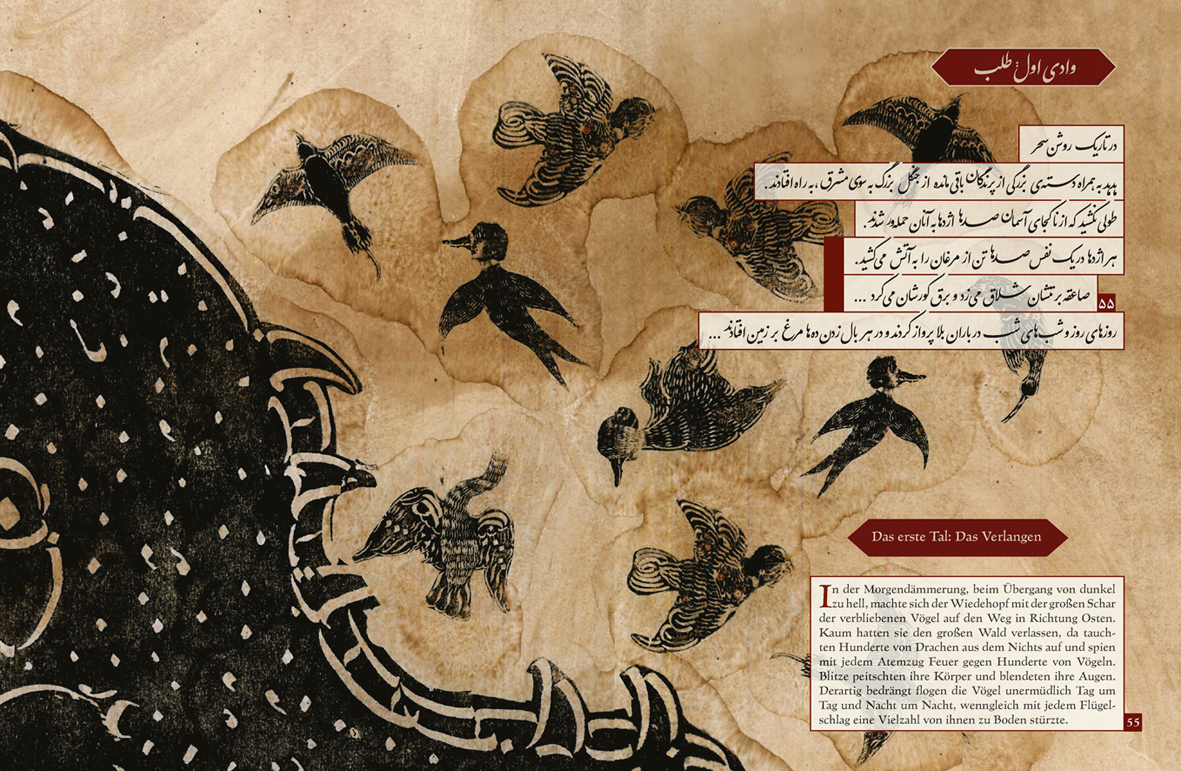 وادی اول: طلب
در تاریک روشن سحر
هدهد به همراه دسته‌ی بزرگی از پرندگان باقی مانده از جنگل بزرگ به سوی مشرق، به راه افتادند.
طولی نکشید که از ناکجای آسمان صدها اژدها به آنان حمله‌ور شدند.
هر اژدها در یک نفس صدها تن از مرغان را به آتش می‌کشید.
صاعقه بر تنشان شلاق می‌زد و برق کورشان می‌کرد ...
۵۵
روزهای روز و شب‌های شب در باران بلا پرواز کردند و در هر بال زدن ده‌ها مرغ بر زمین افتادند ...
Das erste Tal: Das Verlangen
In der Morgendämmerung, beim Übergang von dunkel
zu hell, machte sich der Wiedehopf mit der großen Schar
der verbliebenen Vögel auf den Weg in Richtung Osten.
Kaum hatten sie den großen Wald verlassen, da tauch-
ten Hunderte von Drachen aus dem Nichts auf und spien
mit jedem Atemzug Feuer gegen Hunderte von Vögeln.
Blitze peitschten ihre Körper und blendeten ihre Augen.
Derartig bedrängt flogen die Vögel unermüdlich Tag um
Tag und Nacht um Nacht, wenngleich mit jedem Flügel-
schlag eine Vielzahl von ihnen zu Boden stürzte.
55